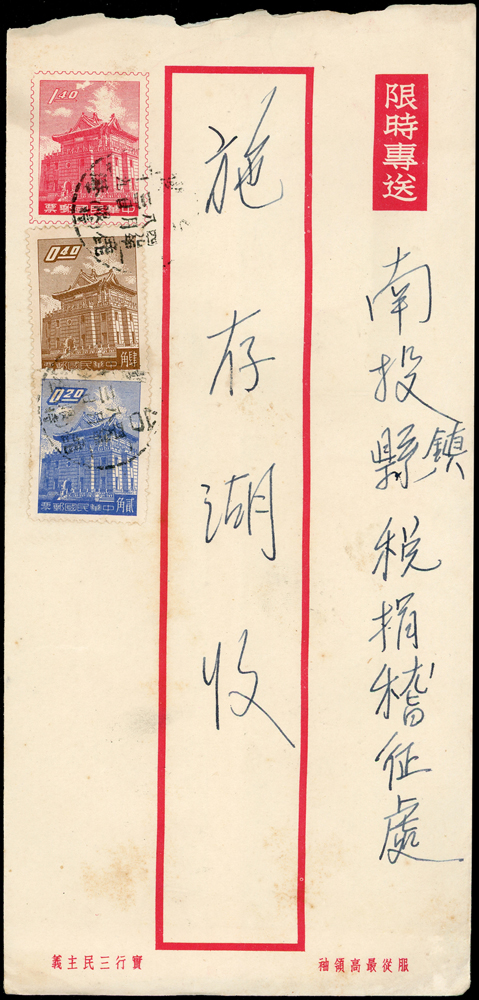 限時專送
南投縣鎮稅捐稽征處
施存湖收
1.40
票郵國民華中
0.40
角肆
票郵國民華中
0.20
票郵國民華中
角貳
服從最高領袖
實行三民主義